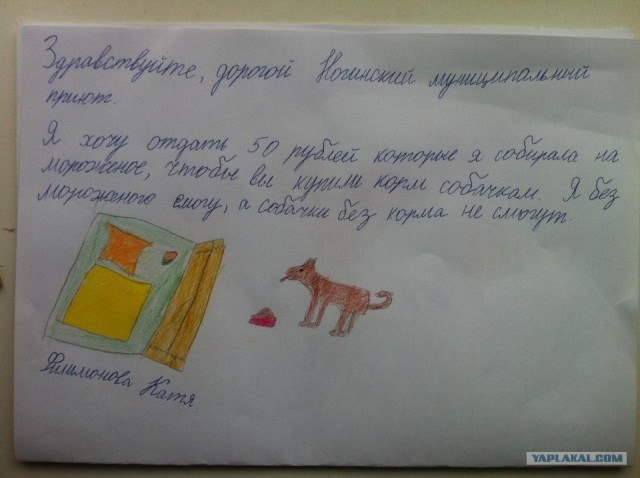 Здравствуйте, дорогой Ногинский муниципальный
приют.
Я хочу отдать 50 рублей которые я собирала на
мороженое, чтобы вы купили корм собачкам. Я без
морожаного смогу, а собачки без корма не смогут.
Филимонова Катя.
YAPLAKAL.COM